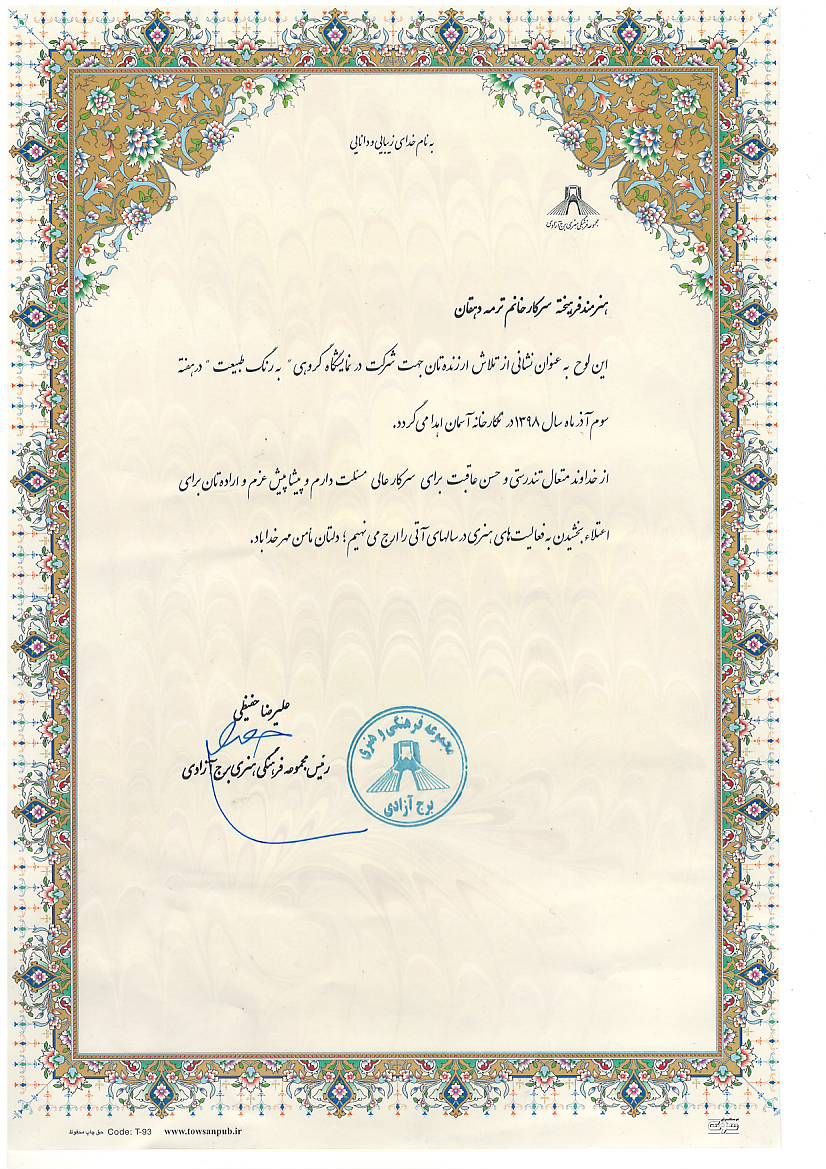 به نام خدای زیبایی و دانایی
مجموعه فرهنگی هنری برج آزادی
هنرمند فرهیخته سرکار خانم ترمه دهقان
این لوح به عنوان نشانی از تلاش ارزنده تان جهت شرکت در نمایشگاه گروهی " به رنگ طبیعت " در هفته
سوم آذر ماه سال ۱۳۹۸ در نگارخانه آسمان اهدا می گردد.
از خداوند متعال تندرستی و حسن عاقبت برای سرکار عالی مسئلت دارم و پیشاپیش عزم و اراده تان برای
اعتلاء بخشیدن به فعالیت های هنری در سالهای آتی را ارج می نهیم؛ دلتان مأمن مهر خدا باد.
علیرضا حفیظی
رئیس مجموعه فرهنگی هنری برج آزادی
مجموعه فرهنگی و هنری
برج آزادی
حق چاپ محفوظ Code: T-93 www.towsanpub.ir